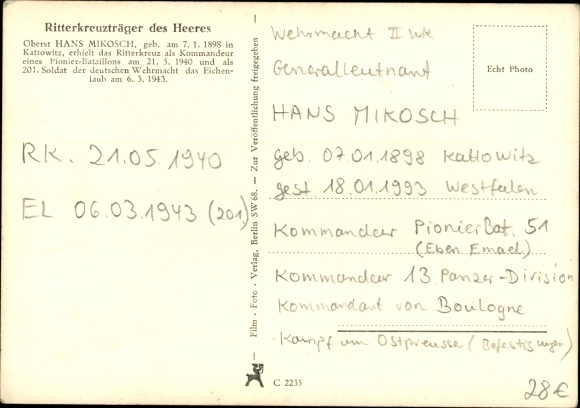 Ritterkreuzträger des Heeres
Oberst HANS MIKOSCH, geb. am 7. 1. 1898 in
Kattowitz, erhielt das Ritterkreuz als Kommandeur
eines Pionier-Bataillons am 21. 5. 1940 und als
201. Soldat der deutschen Wehrmacht das Eichen-
laub am 6. 3. 1943.
RK. 21.05.1940
EL 06.03.1943 (201)
Film - Foto - Verlag, Berlin SW 68. — Zur Veröffentlichung freigegeben —
Wehrmacht II WK
Generalleutnant
Echt Photo
HANS MIKOSCH
geb. 07.01.1898 Kattowitz
gest. 18.01.1993 Westfalen
Kommandeur Pionier Bat. 51
(Eben Emael)
Kommandeur 13. Panzer-Division
Kommandant von Boulogne
Kampf um Ostpreussen (Befestigungen)
C 2235
28€